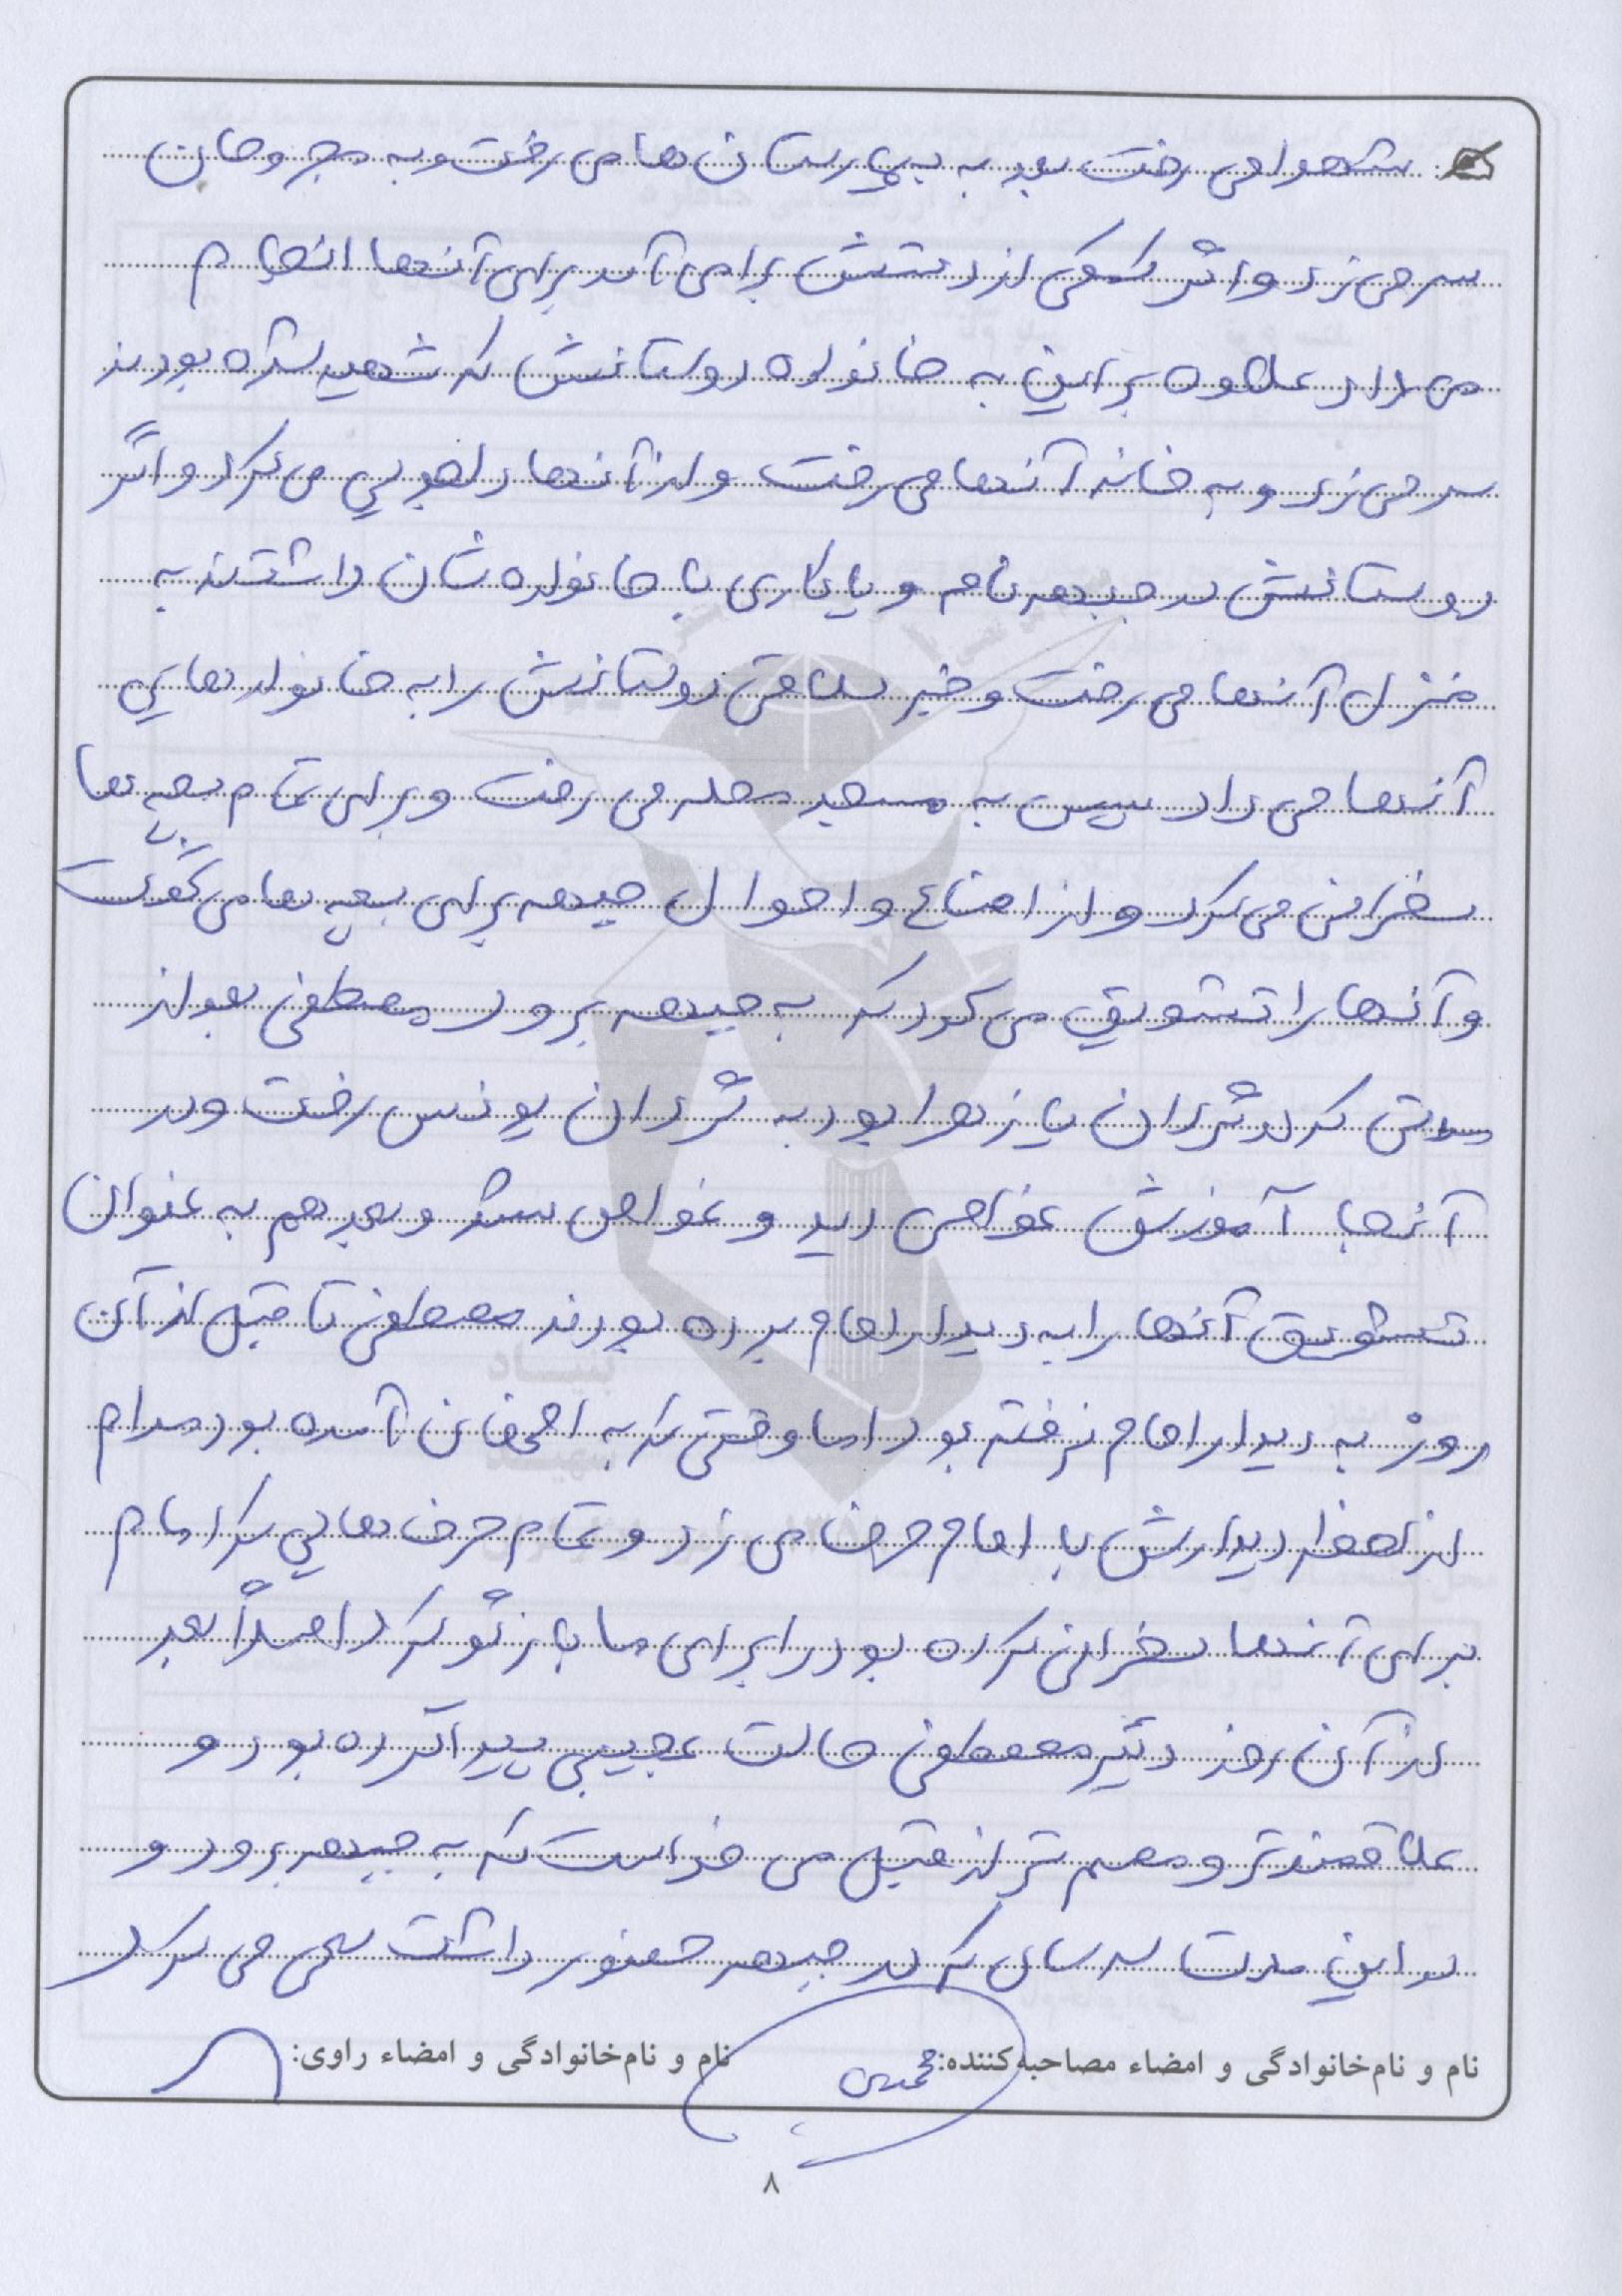 شهدا می رفت بعد به بیمارستان ها می رفت و به مجروحان
سر می زد و اگر کمکی از دستش برا می آمد برای آنها انجام
می داد علاوه بر این به خانواده دوستانش که شهید شده بودند
سر می زد و به خانه آنها می رفت و از آنها دلجویی می کرد و اگر
دوستانش در جبهه نامه و یا کاری با خانواده شان داشتند به
منزل آنها می رفت و خبر سلامتی دوستانش را به خانواده هایی
آنها می داد سپس به مسجد محله می رفت و برای تمام بچه ها
سخرانی می کرد و از اضاع و احوال جبهه برای بچه ها می گفت
و آنها را تشویق می کرد که به جبهه برود مصطفی بعد از
مدتی که در گردان یا زهرا بود به گردان یونس رفت و در
آنجا آموزش غواصی دید و غواص شد و بعد هم به عنوان
تشویق آنها را به دیدار امام برده بودند مصطفی تا قبل از آن
روز به دیدار امام نرفته بود اما وقتی که به اصفهان آمده بود مدام
از لحظه دیدارش با امام حرف می زد و تمام حرف هایی که امام
برای آنها سخرانی کرده بود را برای ما بازگو کرد اصلاً بعد
از آن روز دیگر مصطفی حالت عجیبی پیدا کرده بود و
علاقمندتر و مصمم تر از قبل می خواست که به جبهه برود و
در این مدت سه سال که در جبهه حضور داشت سعی می کرد
نام و نام‌خانوادگی و امضاء مصاحبه‌کننده: محمدی نام و نام‌خانوادگی و امضاء راوی:
۸